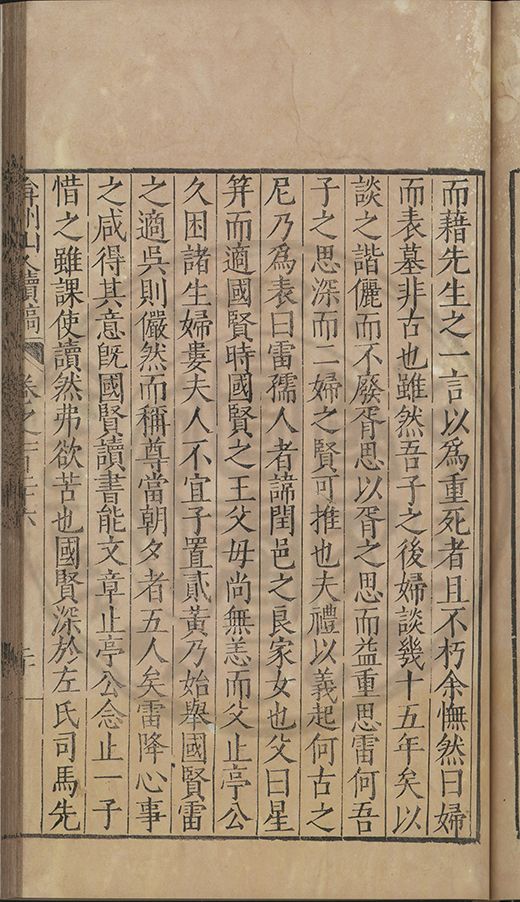 而藉先生之一言以爲重死者且不朽余憮然曰婦
而表墓非古也雖然吾子之後婦談幾十五年矣以
談之諧儷而不廢胥思以胥之思而益重思雷何吾
子之思深而二婦之賢可推也夫禮以義起何古之
尼乃爲表曰雷孺人者諦閏邑之良家女也父曰星
筭而適國賢時國賢之王父毋尚無恙而父止亭公
久困諸生婦婁夫人不宜子置貳黃乃始舉國賢雷
之適吳則儼然而稱尊當朝夕者五人矣雷降心事
之咸得其意旣國賢讀書能文章止亭公念止一子
惜之雖課使讀然弗欲苦也國賢深於左氏司馬先
弇州山人續稿 卷之一百二十六